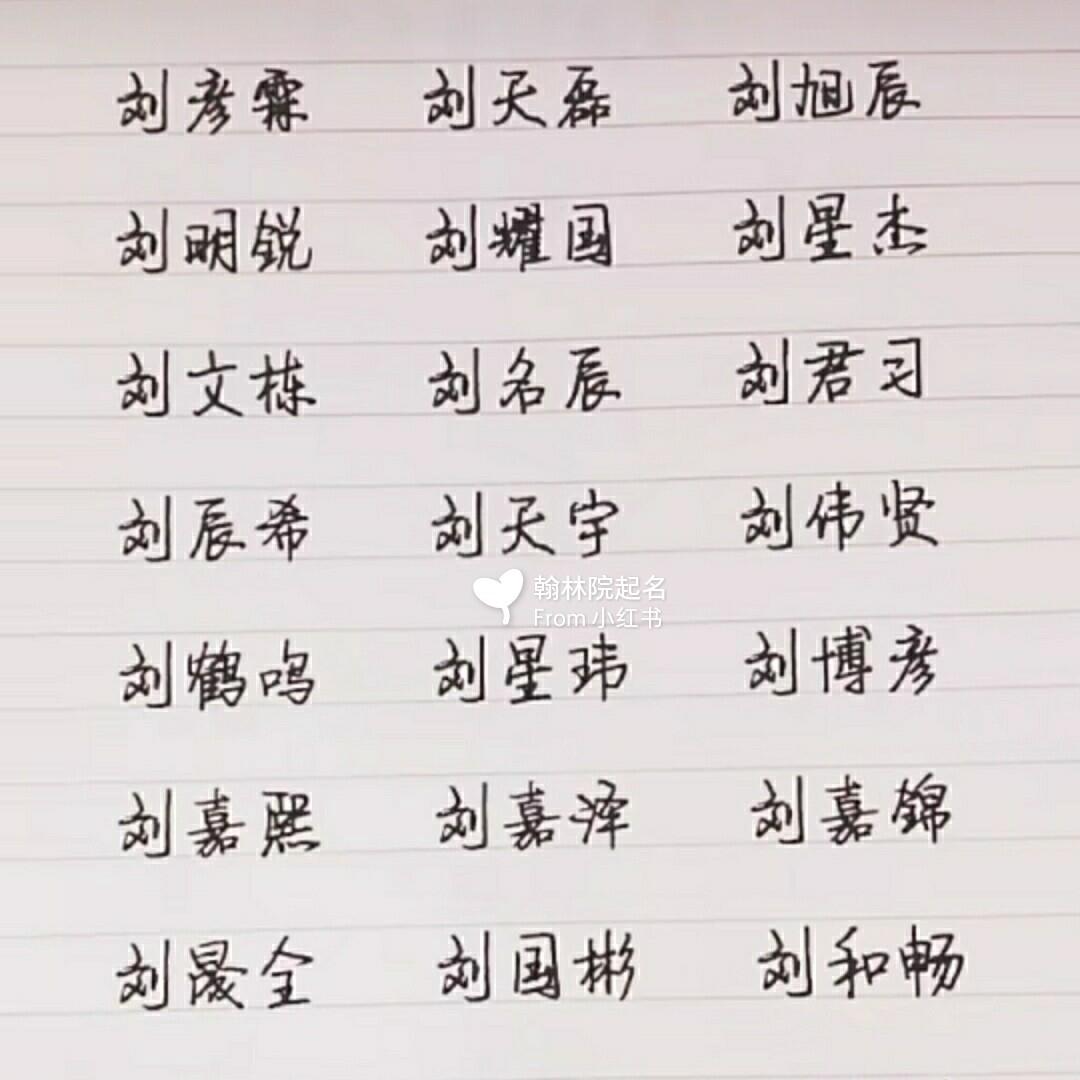 刘彦霖 刘天磊 刘旭辰
刘明锐 刘耀国 刘星杰
刘文栋 刘名辰 刘君习
刘辰希 刘天宇 刘伟贤
翰林院起名
From 小红书
刘鹤鸣 刘星玮 刘博彦
刘嘉熙 刘嘉泽 刘嘉錦
刘晟全 刘国彬 刘和畅